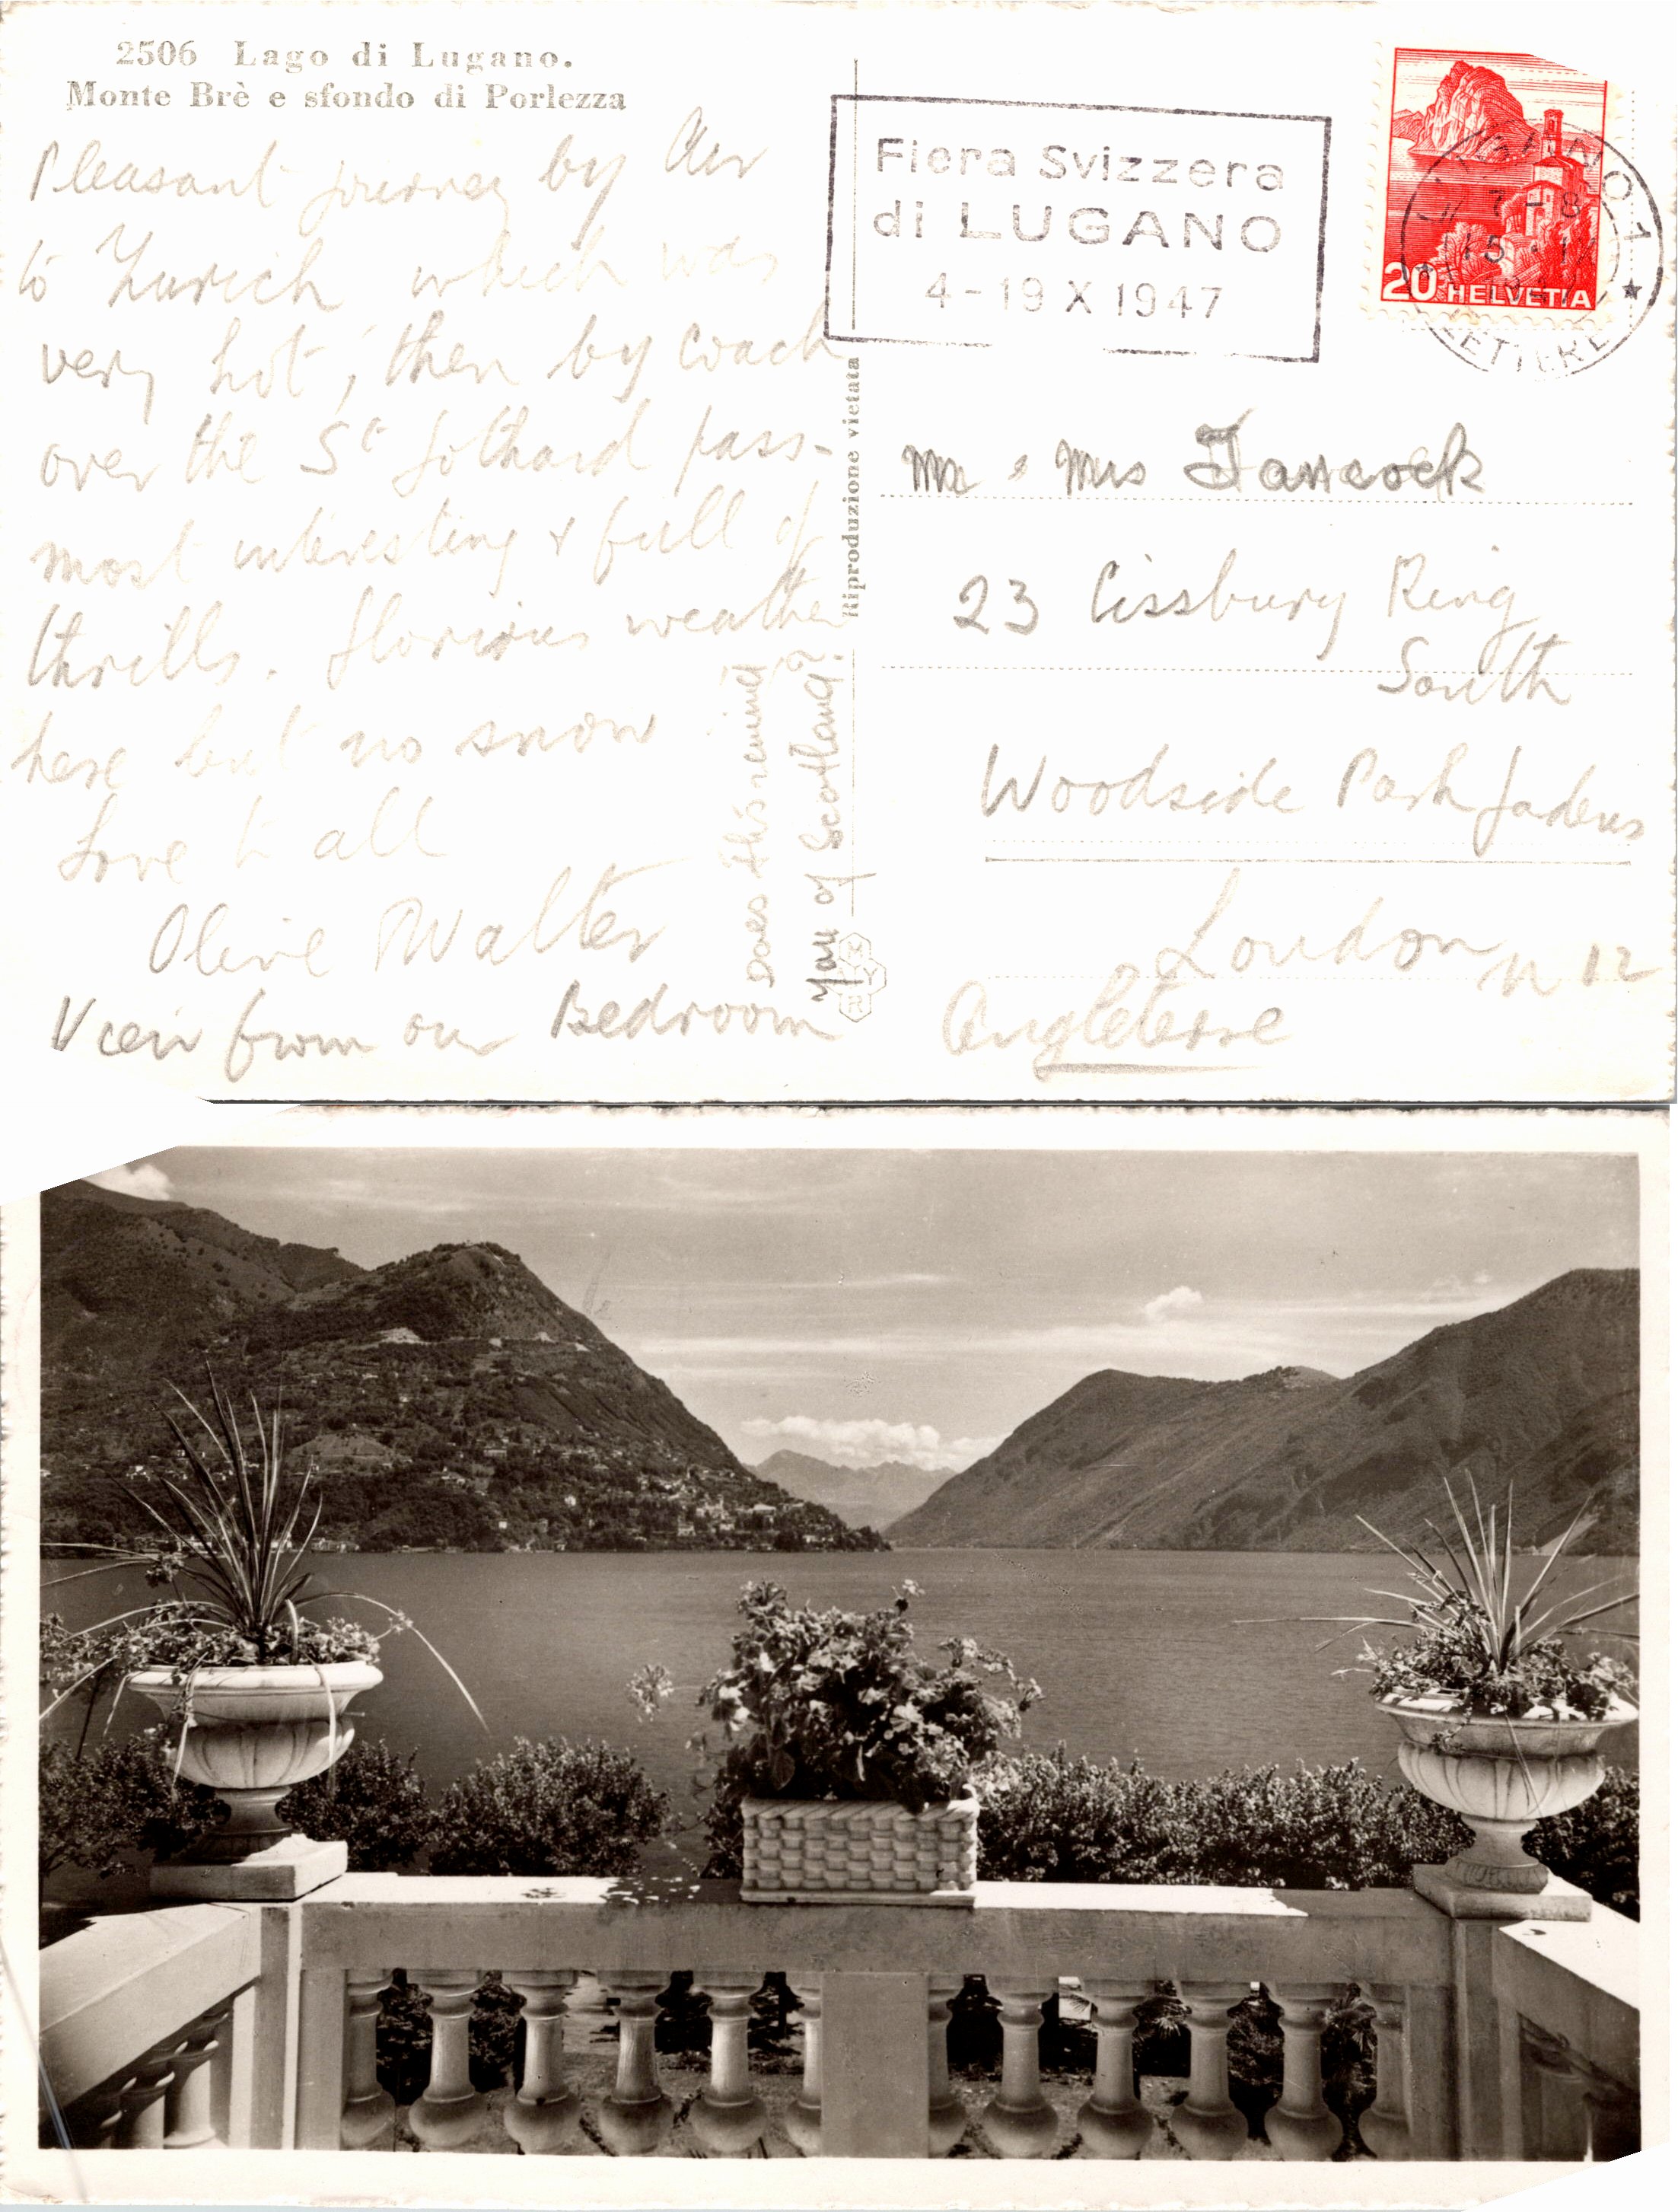 2506 Lago di Lugano.
Monte Brè e sfondo di Porlezza
Pleasant journey by Air
to Zurich which was
very hot, then by coach
over the St Gothard pass -
most interesting & full of
thrills. Glorious weather
here but no snow
Love to all
Olive Walter
View from our Bedroom
Does this remind
You of Scotland?
Riproduzione vietata
Fiera Svizzera
di LUGANO
4-19 X 1947
20 HELVETIA
LUGANO 1
7-8
LETTERE
Mr & Mrs Hancock
23 Cissbury Ring
South
Woodside Park Gardens
London N 12
Angleterre